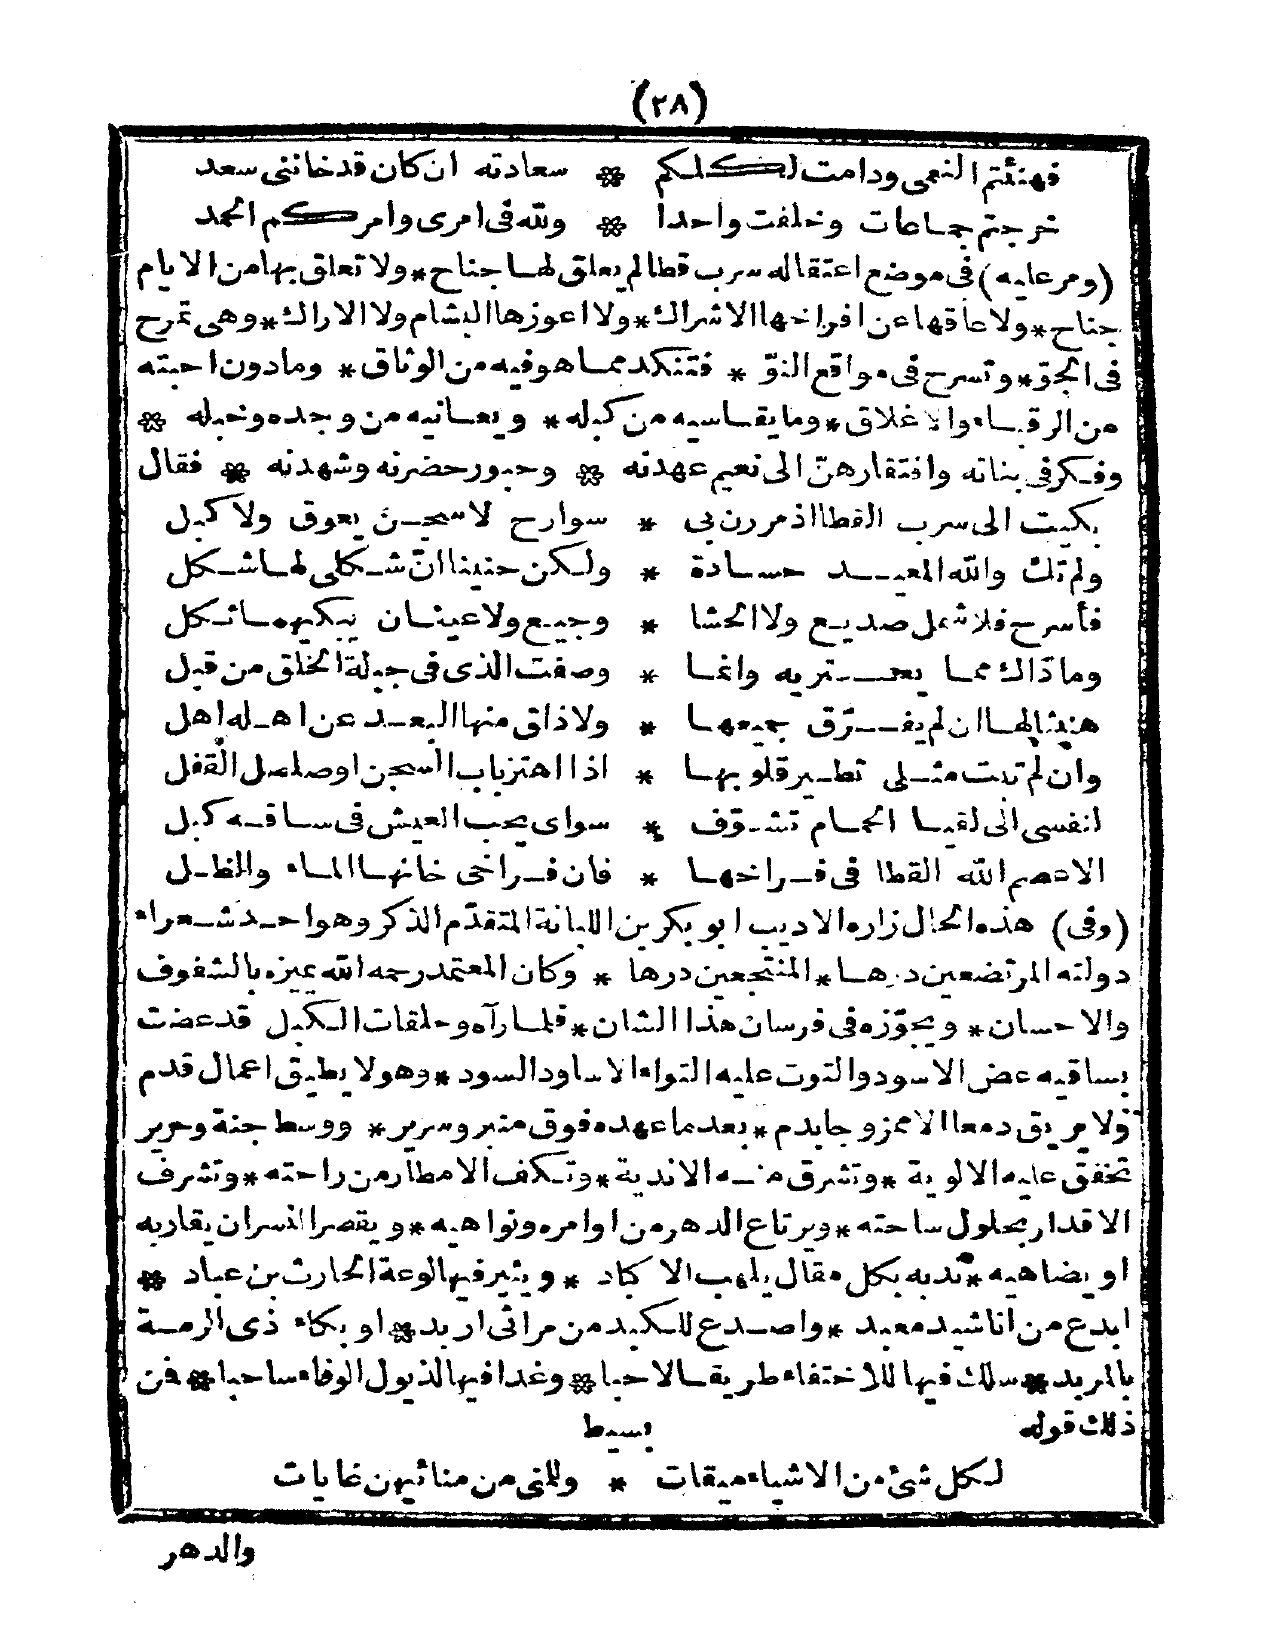 (٢٨)
فهنئتم النعمى ودامت لكلكم * سعادته ان كان قد خانني سعد
خرجتم جماعات وخلفت واحدا * ولله في امرى وامركم الحمد
(ومر عليه) في موضع اعتقاله سرب قطا لم يعلق لها جناح * ولا تعلق بها من الايام
جناح * ولا عاقها عن افراخها الاشراك * ولا اعوزها البشام ولا الاراك * وهى تمرح
فى الجوّ * وتسرح فى مواقع النوّ * فتنكد مما هو فيه من الوثاق * وما دون احبته
من الرقباء والاغلاق * وما يقاسيه من كبله * ويعانيه من وجده وخبله *
وفكر فى بناته وافتقارهنّ الى نعيم عهدنه * وحبور حضرنه وشهدنه * فقال
بكيت الى سرب القطا اذ مررن بى * سوارح لا سجن يعوق ولا كبل
ولم تك والله المعيد حسادة * ولكن حنينا انّ شكلى لها شكل
فأسرح فلا شمل صديع ولا الحشا * وجيع ولا عينان يبكيهما ثكل
وما ذاك مما يعتريه وانما * وصفت الذى فى جبلة الخلق من قبل
هنيئا لها ان لم يفرّق جميعها * ولا ذاق منها البعد عن اهله اهل
وان لم تبت مثلى تطير قلوبها * اذا اهتز باب السجن او صلصل القفل
لنفسى الى لقيا الحمام تشوّف * سواى يحب العيش فى ساقه كبل
الا عصم الله القطا فى فراخها * فان فراخى خانها الماء والظل
(وفى) هذه الحال زاره الاديب ابو بكر بن اللبانة المتقدّم الذكر وهو احد شعراء
دولته المرتضعين درها * المنتجعين درها * وكان المعتمد رحمه الله يميزه بالشفوف
والاحسان * ويجوّزه فى فرسان هذا الشان * فلما رآه وحلقات الكبل قد عضت
بساقيه عض الاسود والتوت عليه التواء الاساود السود * وهو لا يطيق اعمال قدم
ولا يريق دمعا الا ممزوجا بدم * بعد ما عهده فوق منبر وسرير * ووسط جنة وحرير
تخفق عليه الالوية * وتشرق منه الاندية * وتكف الامطار من راحته * وتشرف
الاقدار بحلول ساحته * ويرتاع الدهر من اوامره ونواهيه * ويقصر النسران يقاربه
او يضاهيه * ندبه بكل مقال يلهب الاكباد * ويثير فيها لوعة الحارث بن عباد *
ابدع من اناشيد معبد * واصدع للكبد من مراثى اربد * او بكاء ذى الرمة
بالمربد * سلك فيها للاختفاء طريقا لاحبا * وغدا فيها لذيول الوفاء ساحبا * فمن
ذلك قوله بسيط
لكل شئ من الاشياء ميقات * وللمنى من منائيهن غايات
والدهر